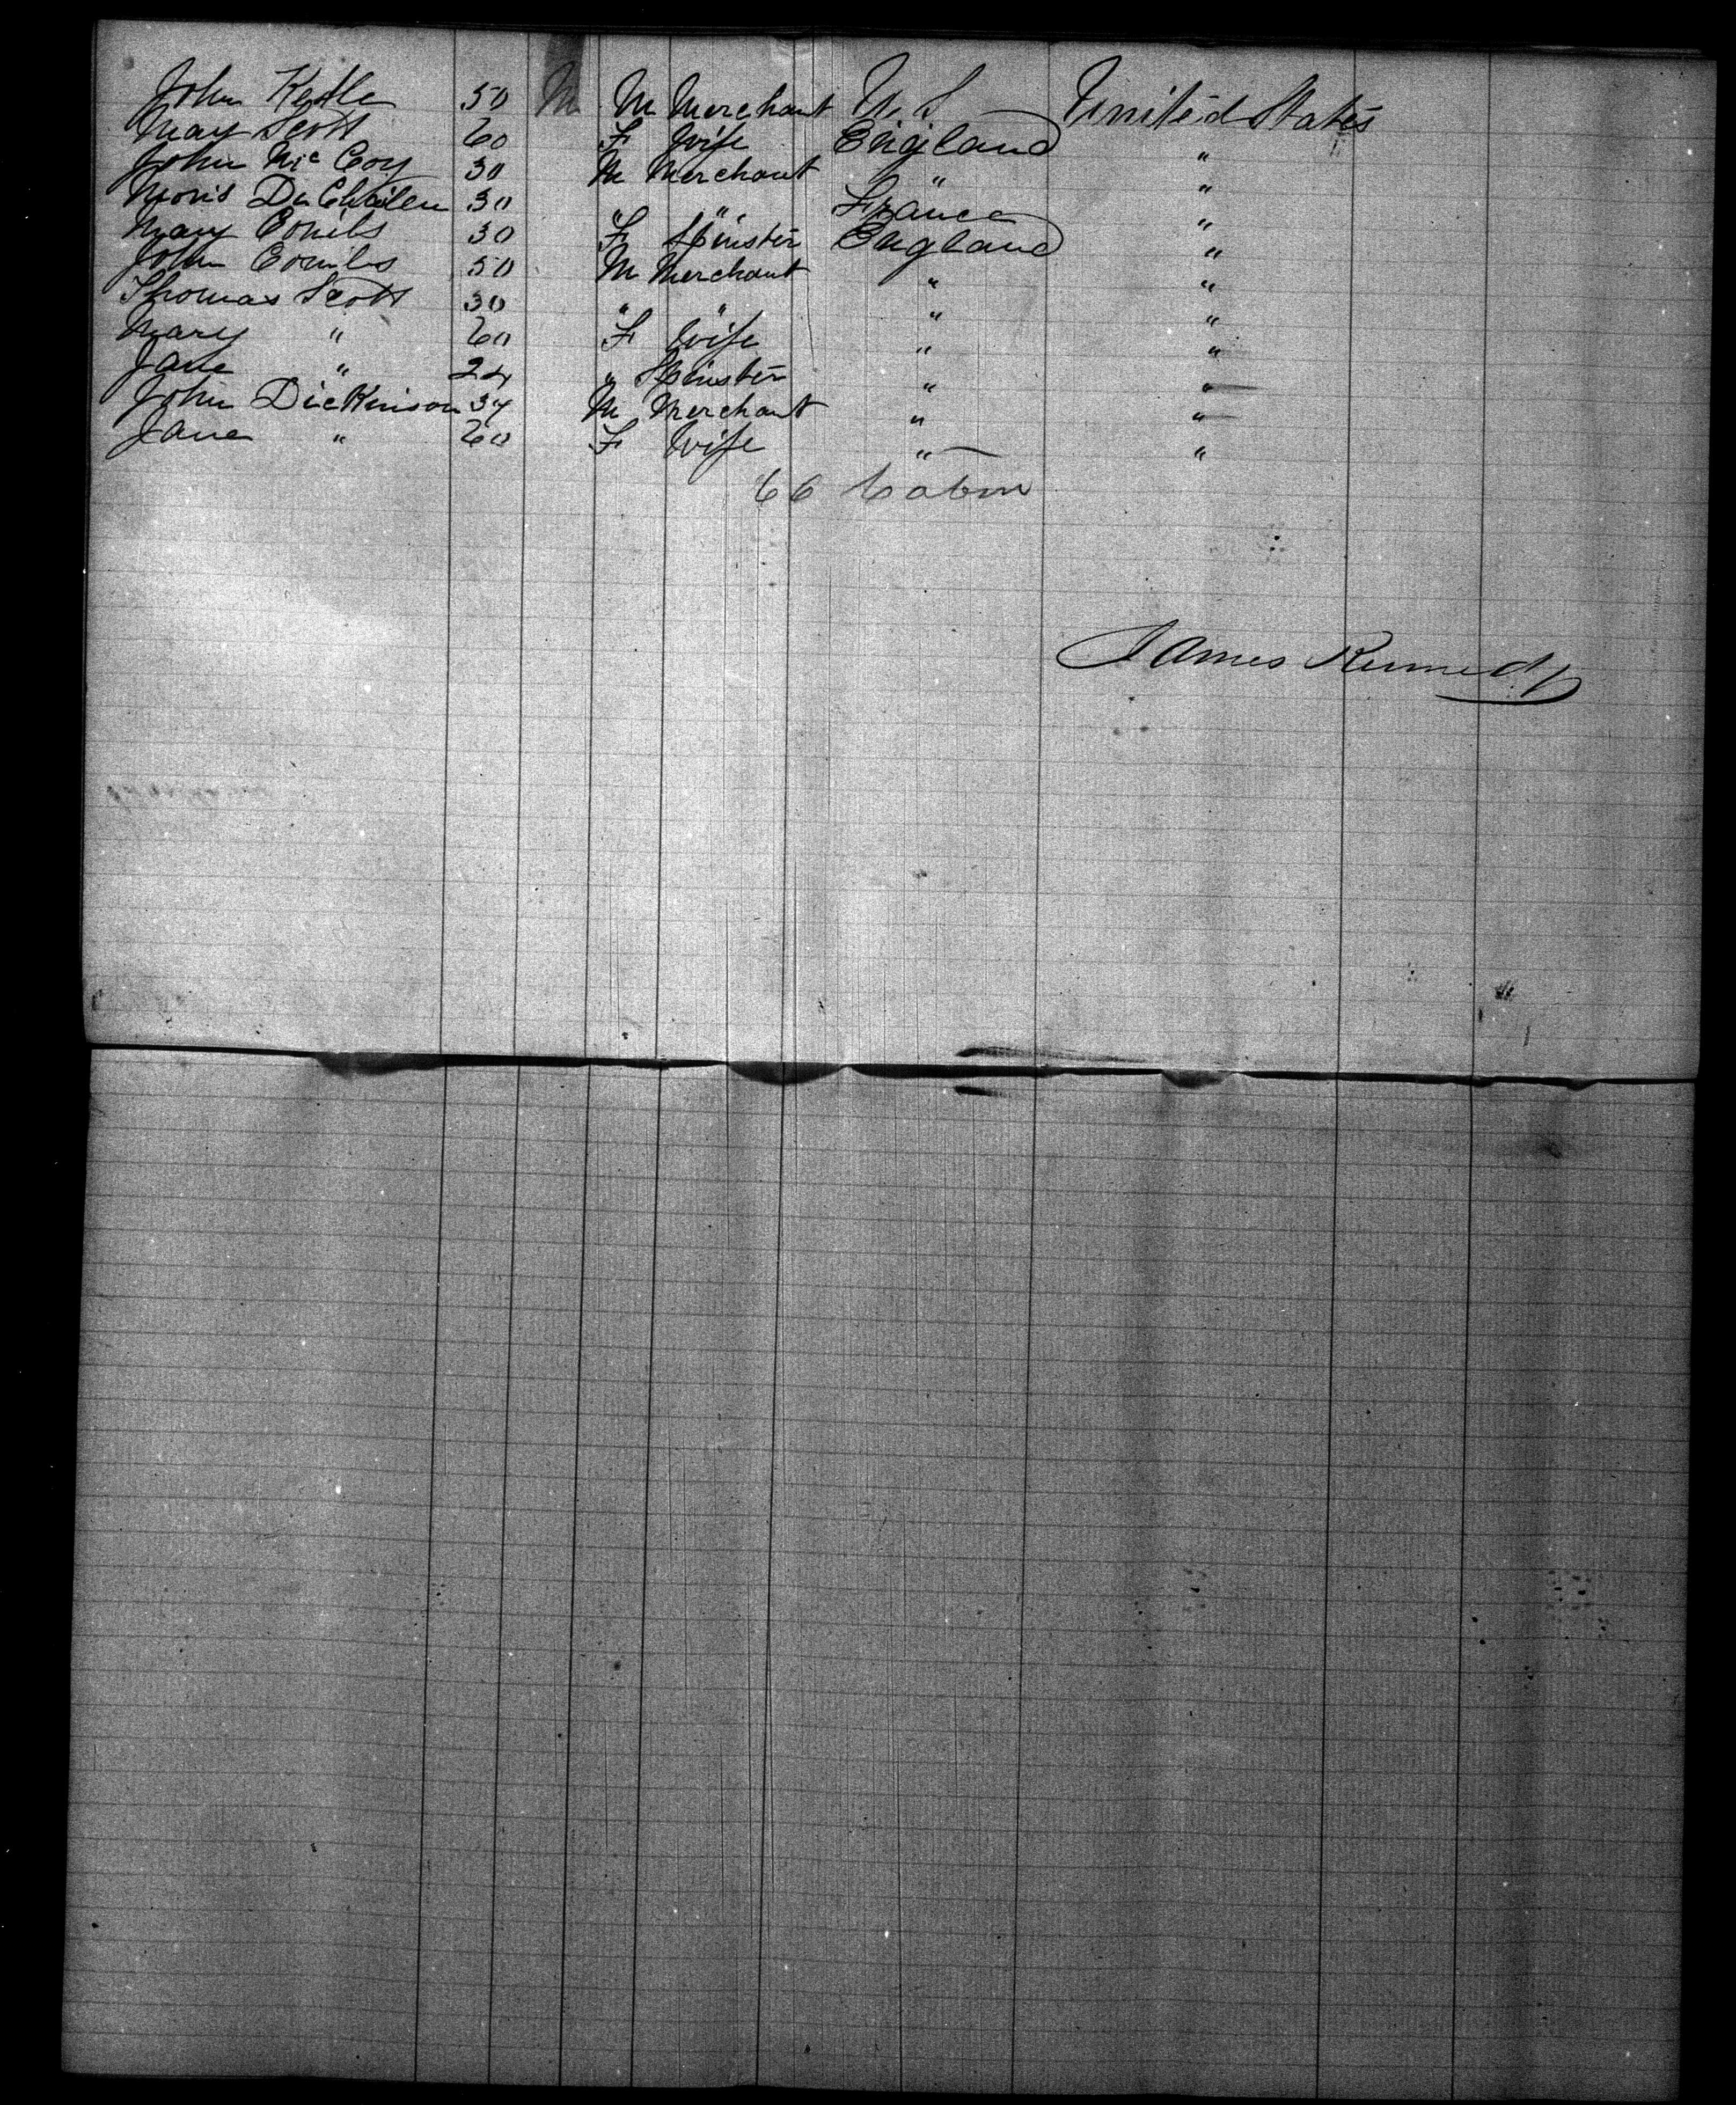 John Kedle 50 M M Merchant U.S United States
May Scott 60 F Wife England "
John McCoy 30 M Merchant " "
Moris Du Chaileu 30 " " France "
Mary Comibs 30 F Spinster England "
John Comibs 50 M Merchant " "
Thomas Scott 30 " " " "
Mary " 60 F Wife " "
Jane " 24 " Spinster " "
John Dickinson 34 M Merchant " "
Jane " 60 F Wife " "
66 Cabin
James Kennedy